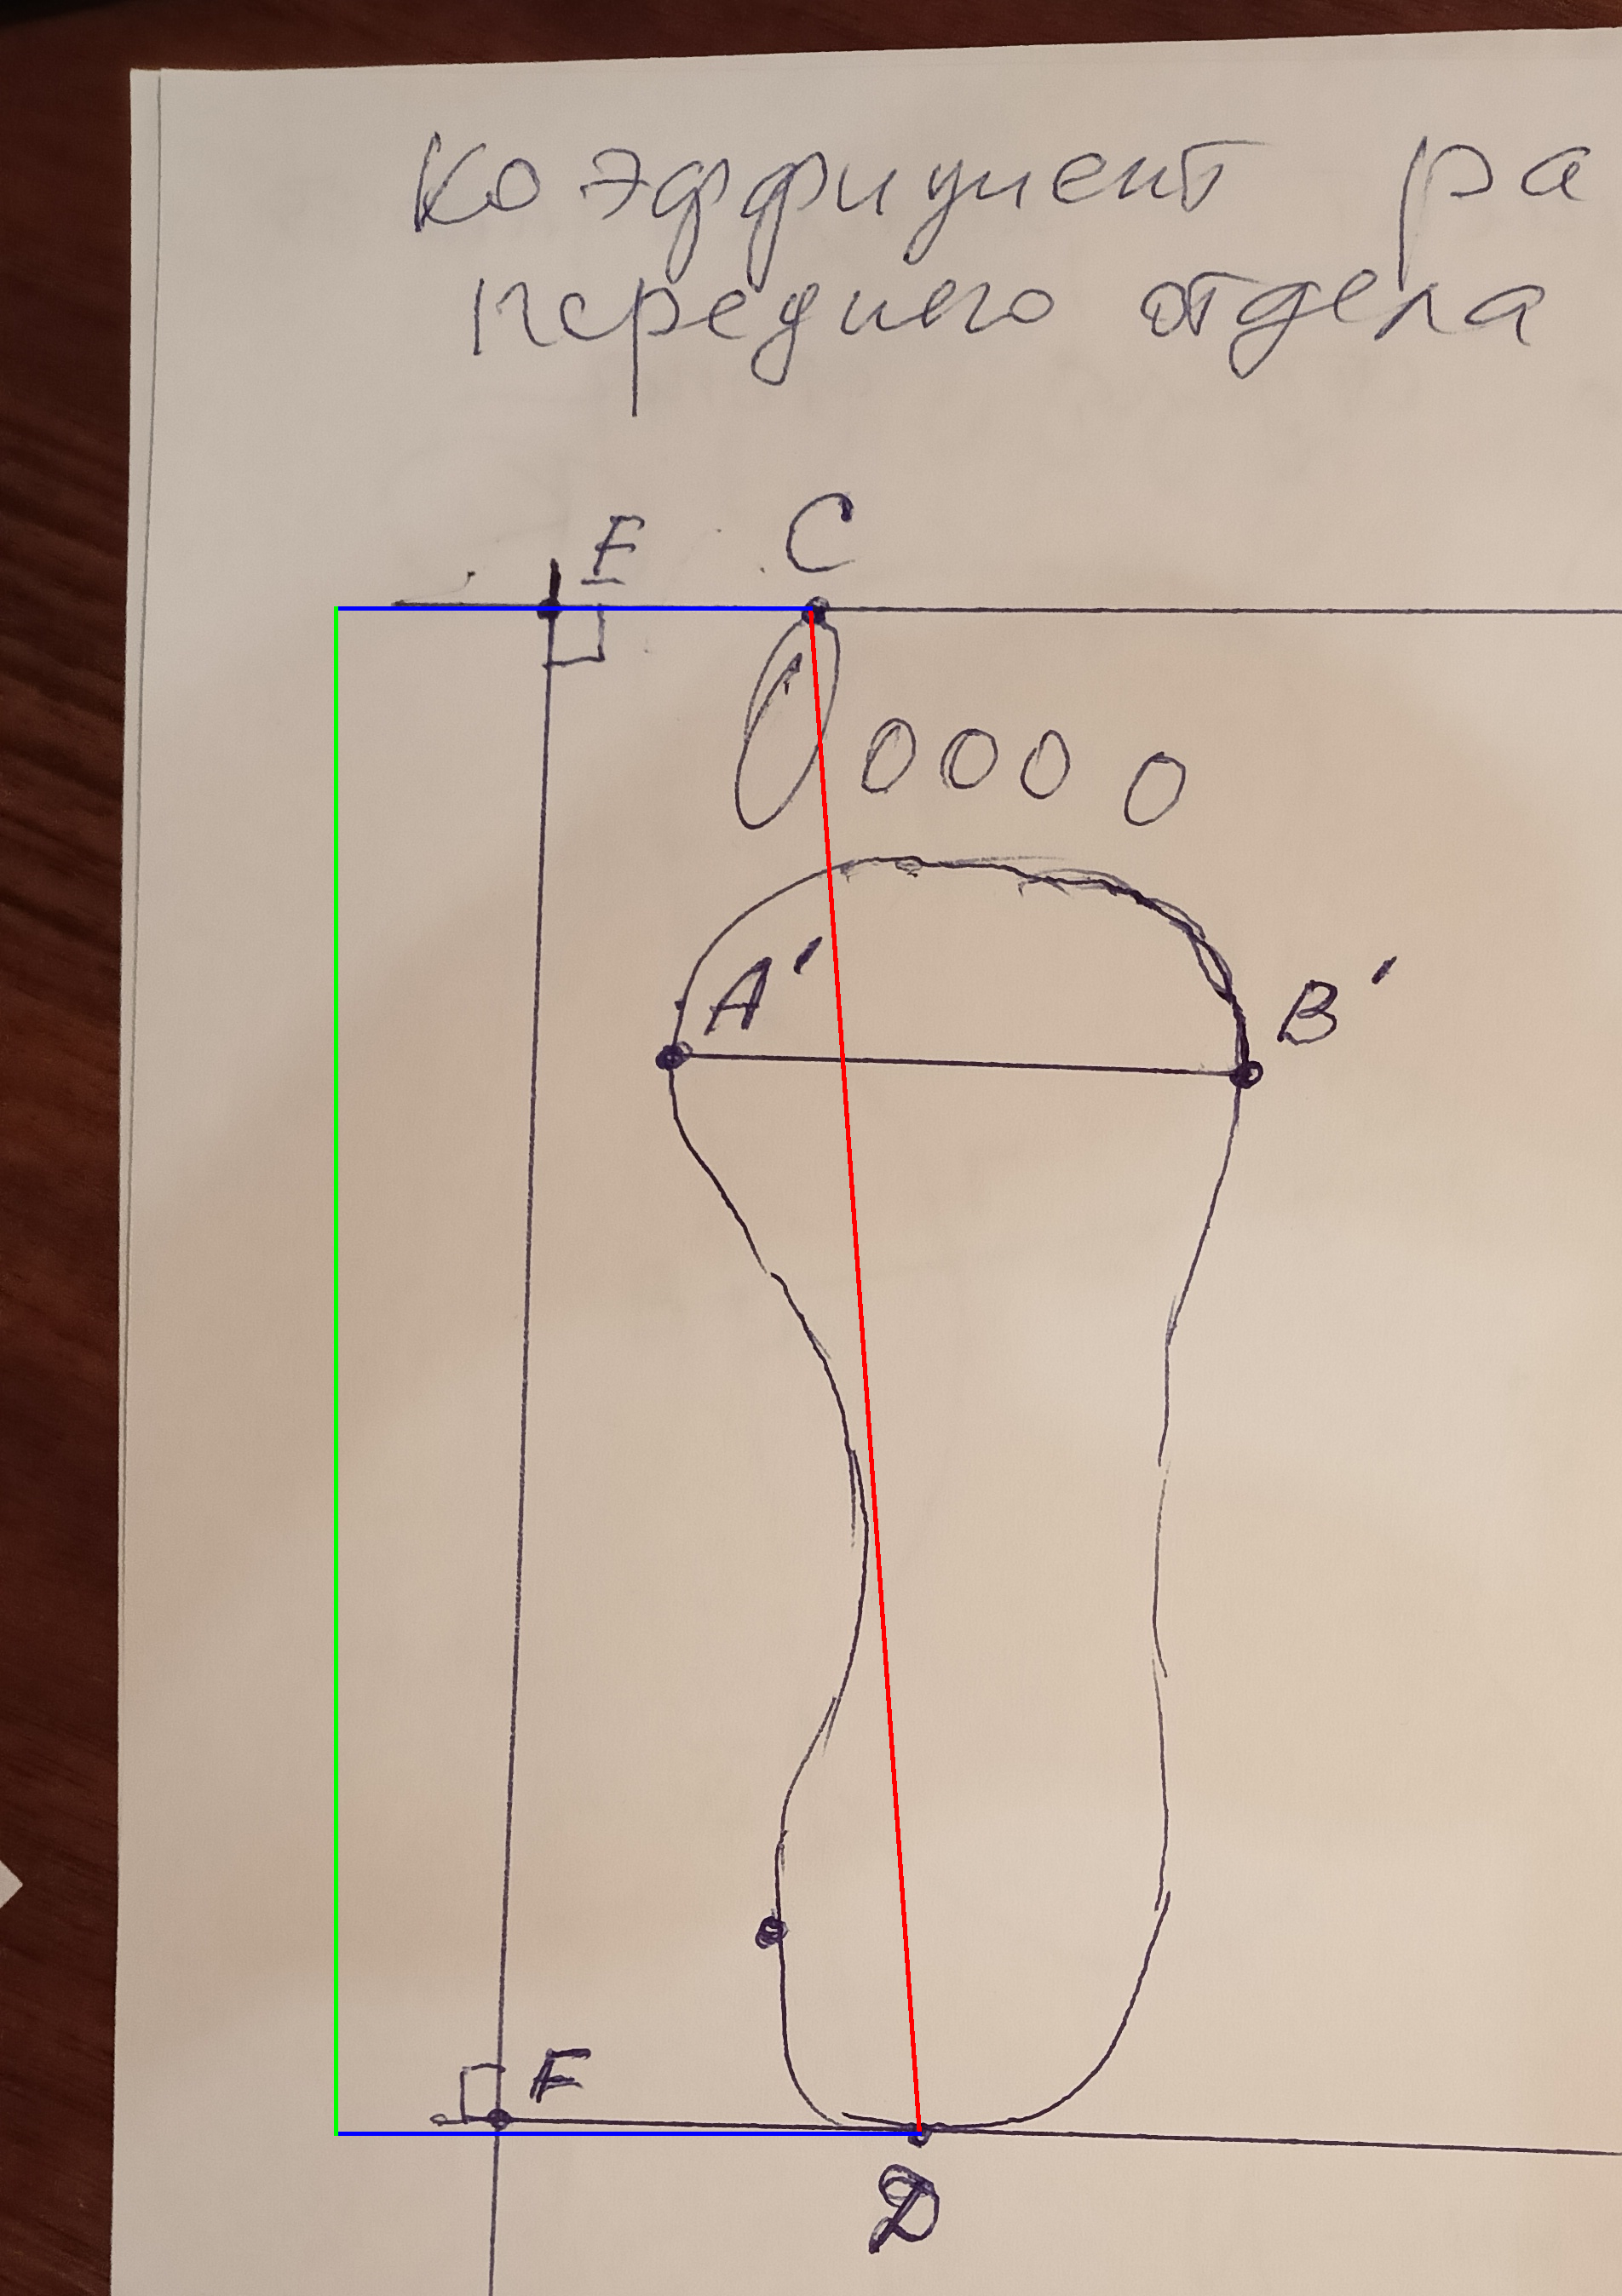 Коэффициент ра
переднего отдела
E C
A' B'
F
D